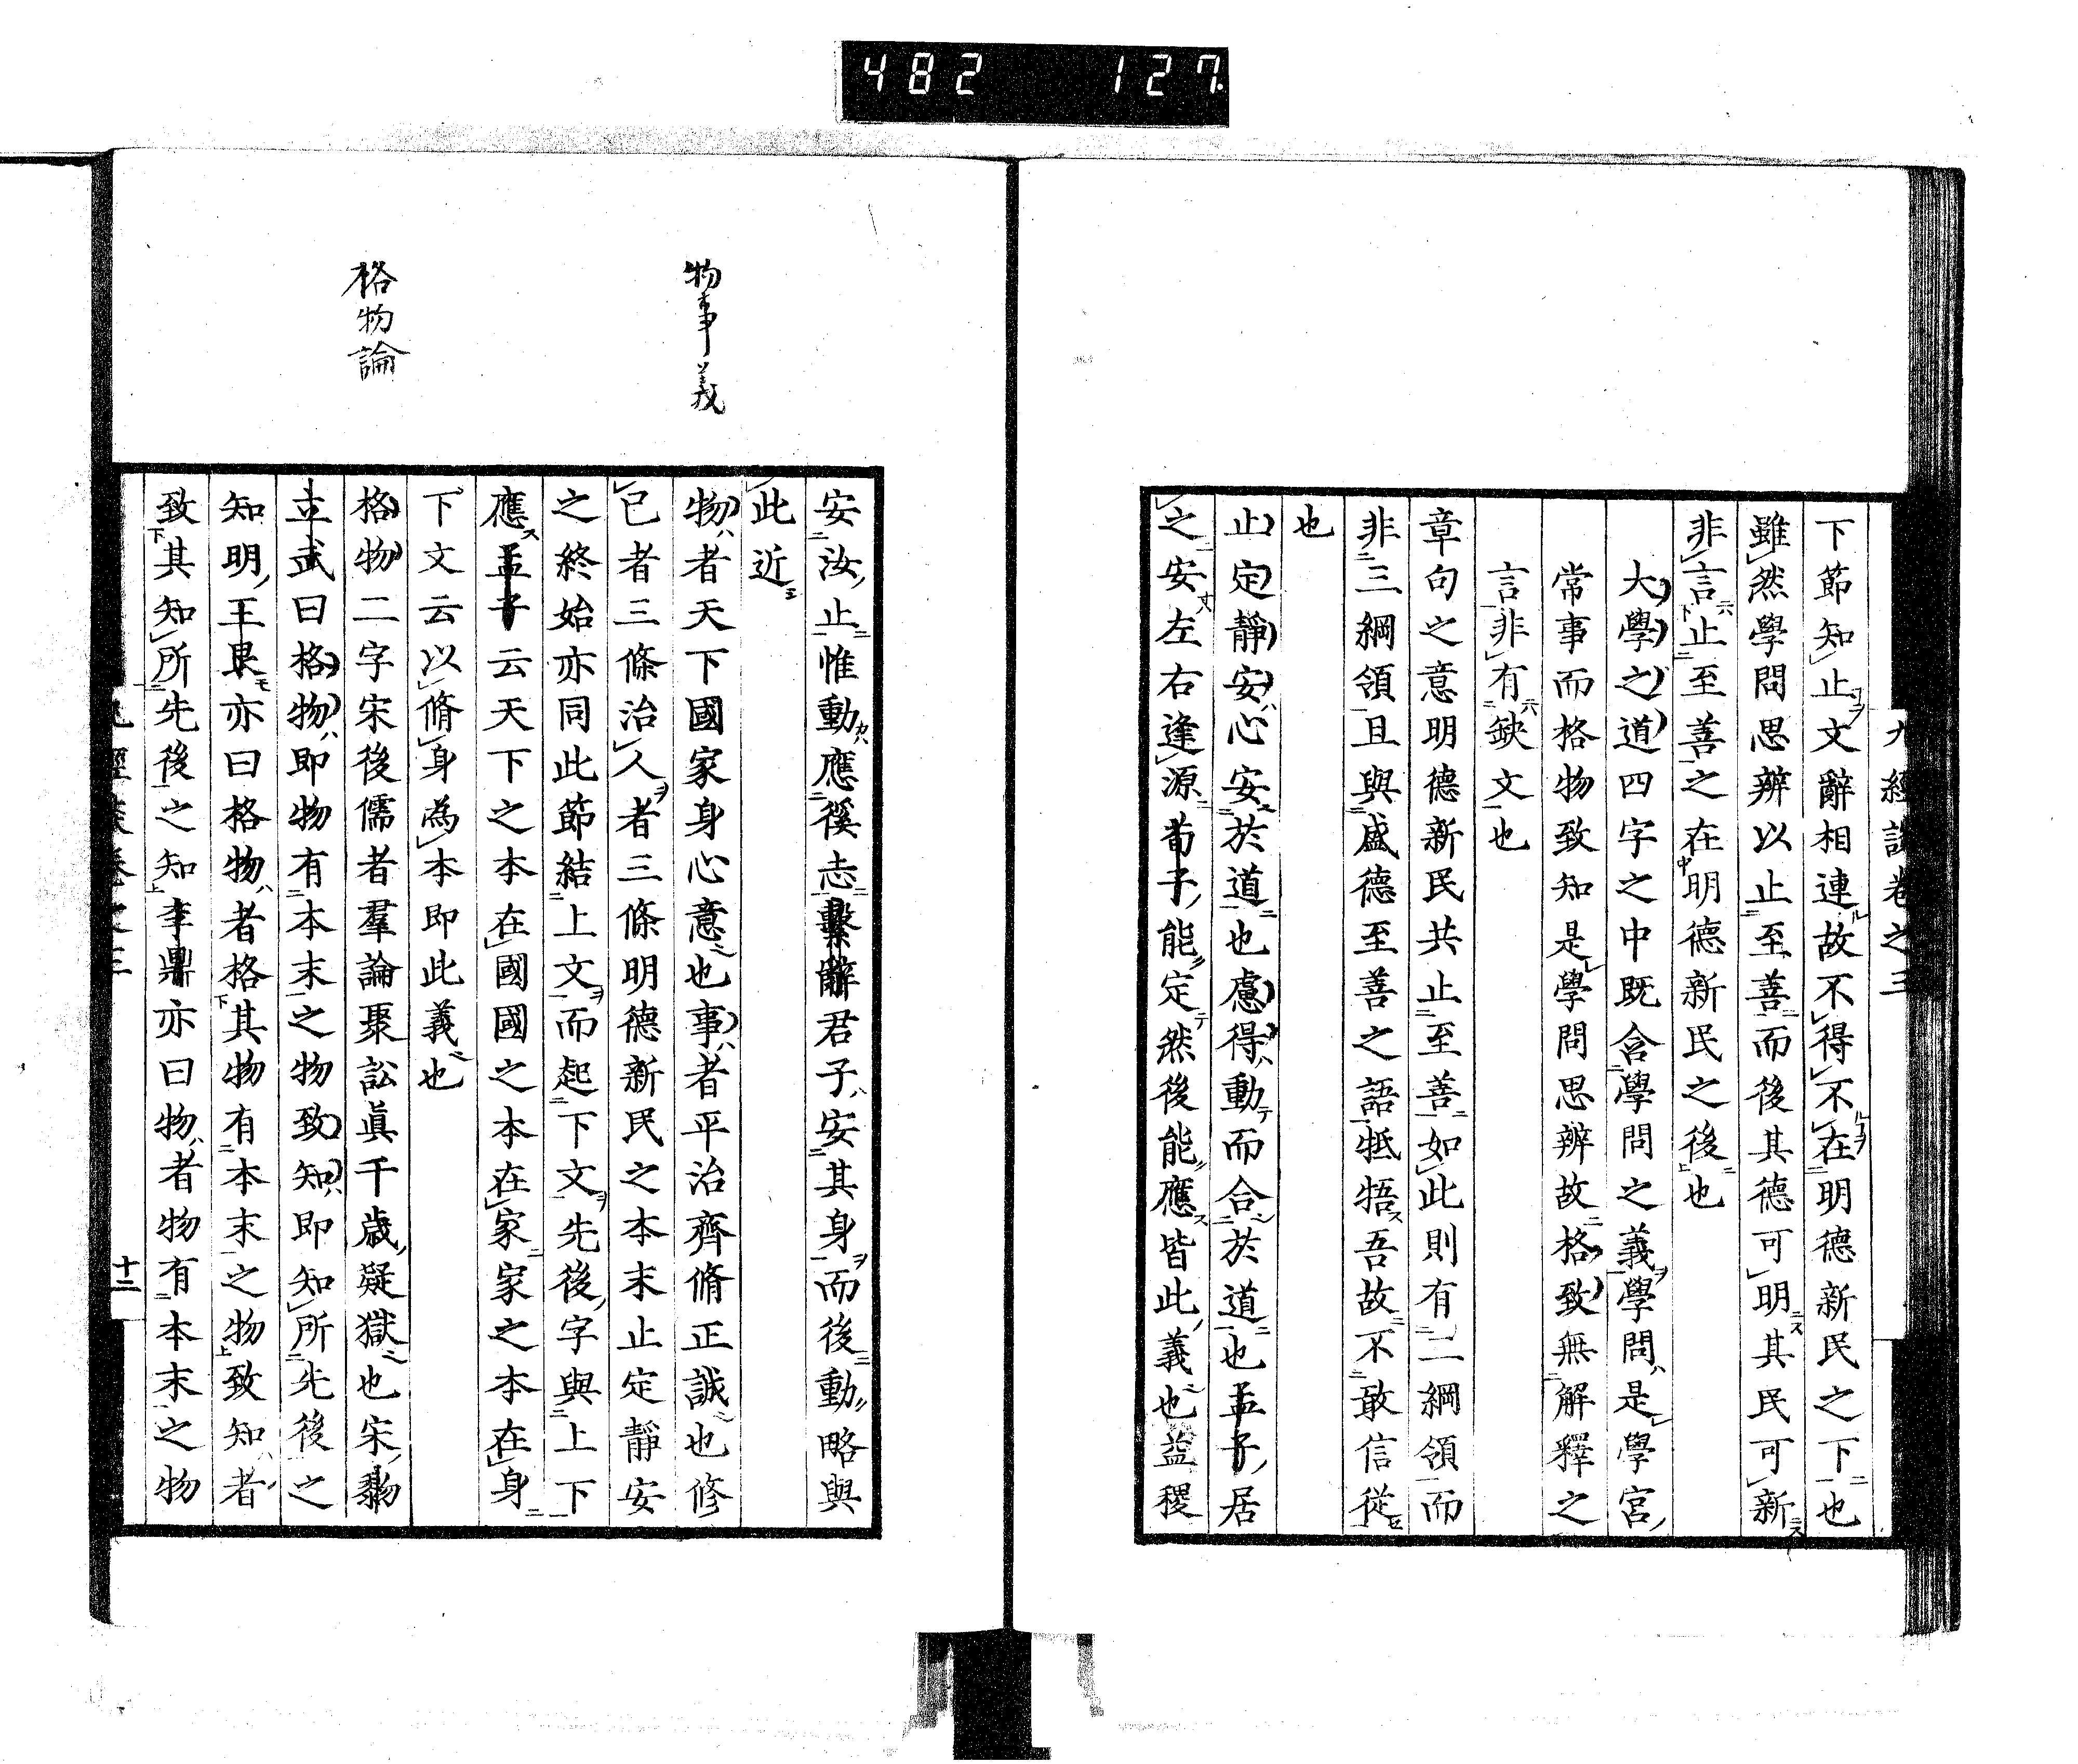 482 127
九經談卷之三
下節知止文辭相連故不得不在明德新民之下也
雖然學問思辨以止至善而後其德可明其民可新
非言止至善之在明德新民之後也
大學之道四字之中既含學問之義學問是學宮
常事而格物致知是學問思辨故格致無解釋之
言非有缺文也
章句之意明德新民共止至善如此則有二綱領而
非三綱領且與盛德至善之語牴牾吾故不敢信從
也
止定靜安心安於道也慮得動而合於道也孟子居
之安左右逢源荀子能定然後能應皆此義也益稷
安汝止惟動應徯志繫辭君子安其身而後動略與
此近
物者天下國家身心意也事者平治齊脩正誠也修
已者三條治人者三條明德新民之本末止定靜安
之終始亦同此節結上文而起下文先後字與上下
應孟子云天下之本在國國之本在家家之本在身
下文云以脩身為本即此義也
格物二字宋後儒者羣論聚訟眞千歲疑獄也宋黎
立武曰格物即物有本末之物致知即知所先後之
知明王艮亦曰格物者格其物有本末之物致知者
致其知所先後之知李鼎亦曰物者物有本末之物
物事義
格物論
十二